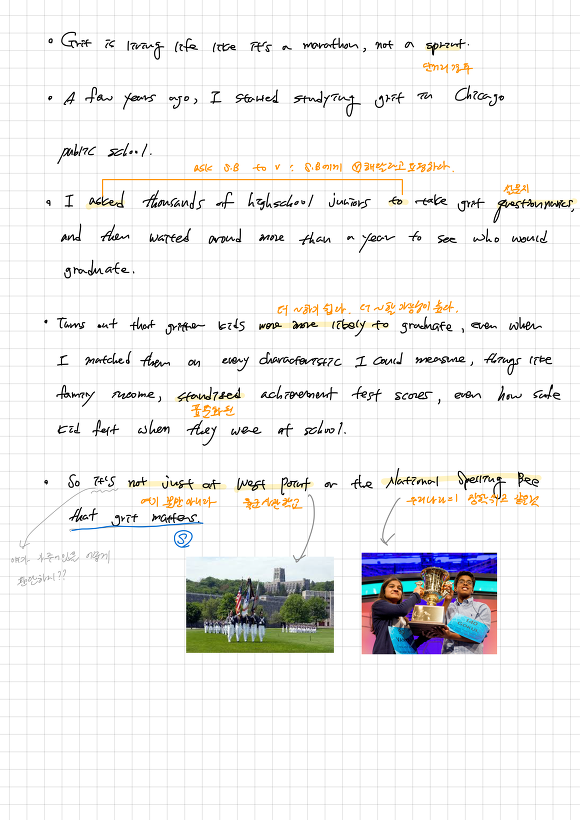 • Grit is living life like it's a marathon, not a sprint.
단거리 경주
• A few years ago, I started studying grit in Chicago
public school.
ask S.B to v : S.B에게 ⓥ해달라고 요청하다.
• I asked thousands of highschool juniors to take grit questionnaires,
설문지
and then waited around more than a year to see who would
graduate.
더 ~하기 쉽다. 더 ~할 가능성이 높다.
• Turns out that grittier kids were more likely to graduate, even when
I matched them on every characteristic I could measure, things like
family income, standized achievement test scores, even how safe
표준화된
kid felt when they were at school.
• So it's not just at West Point or the National Spelling Bee
여기 뿐만 아니라 육군사관학교 우리나라의
that grit matters.
Ⓢ
어떻게